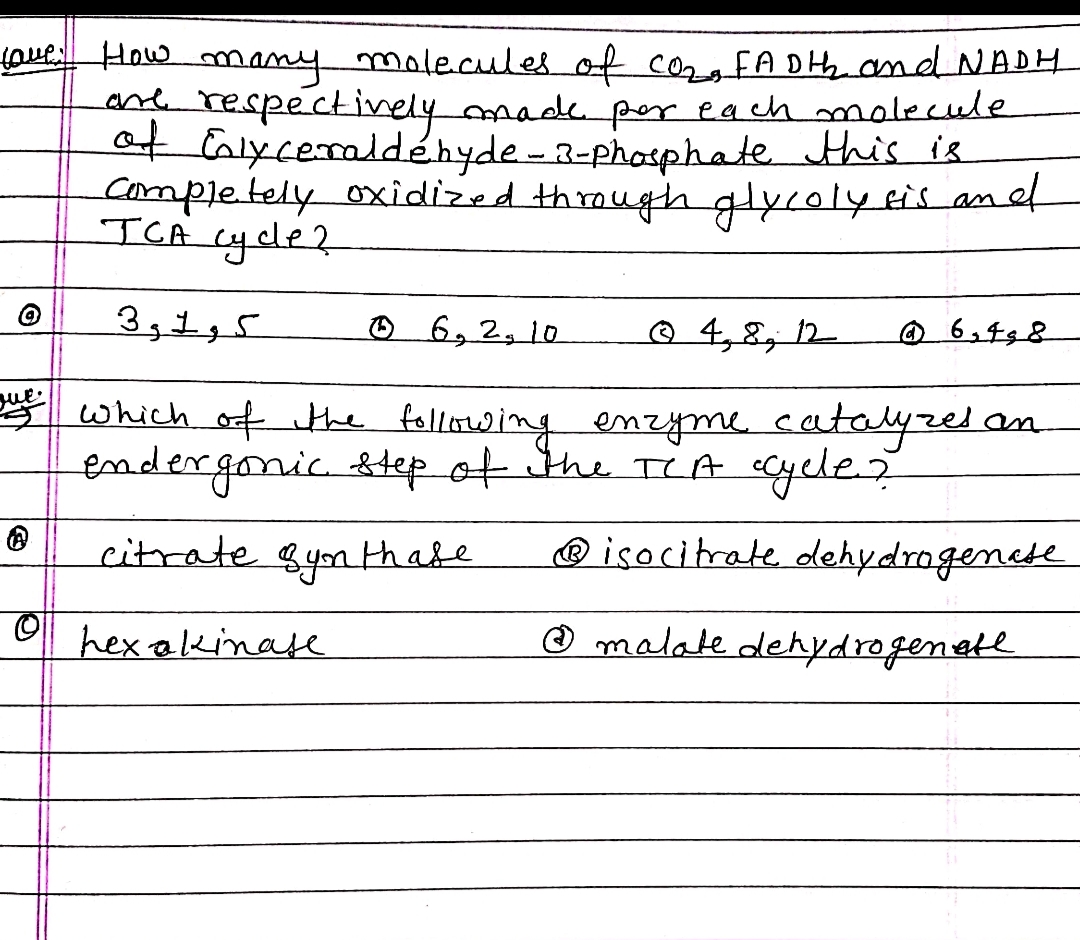 Que: How many molecules of CO2, FADH2 and NADH
are respectively made per each molecule
of Glyceraldehyde-3-phosphate this is
completely oxidized through glycolysis and
TCA cycle?
(a) 3, 1, 5 (b) 6, 2, 10 (c) 4, 8, 12 (d) 6, 4, 8
Que. which of the following enzyme catalyzes an
endergonic step of the TCA cycle?
(A) citrate synthase (B) isocitrate dehydrogenase
(C) hexokinase (d) malate dehydrogenase